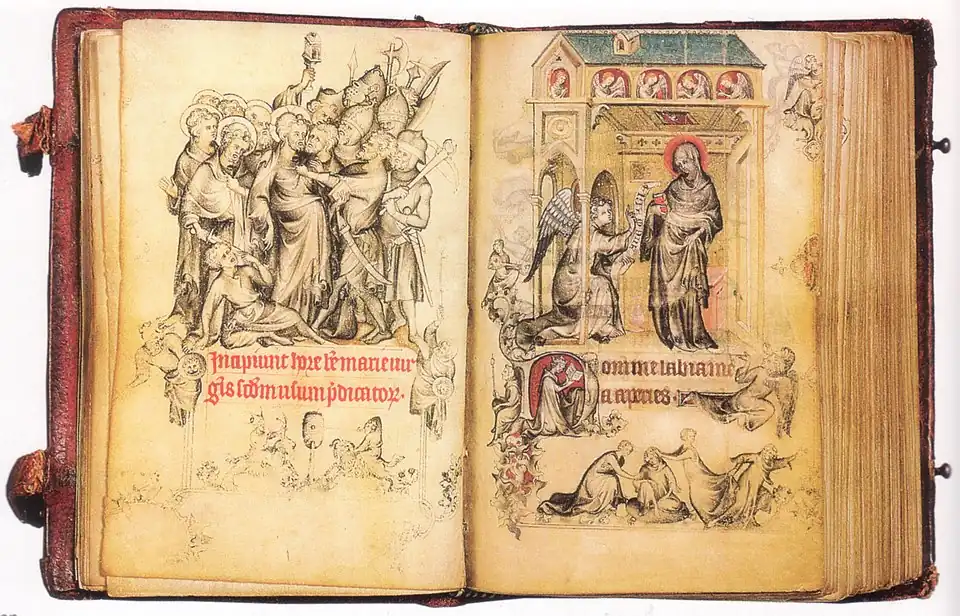 Incipiunt hore bē marie uir
gīs scdm usum p̄dicatoꝝ.
Domine labia me
a aperies.